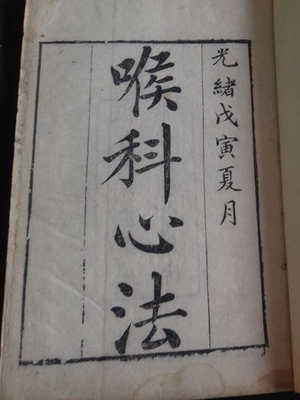 光緒戊寅夏月
喉科心法